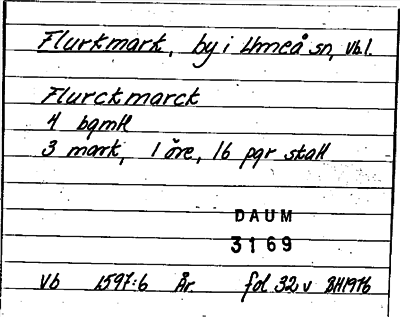 Flurkmark, by i Umeå sn, vb.l.
Flurckmarck
4 bgmtl
3 mark, 1 öre, 16 pgr skatt
DAUM
3169
Vb 1597:6 År. fol 32 v BH1976